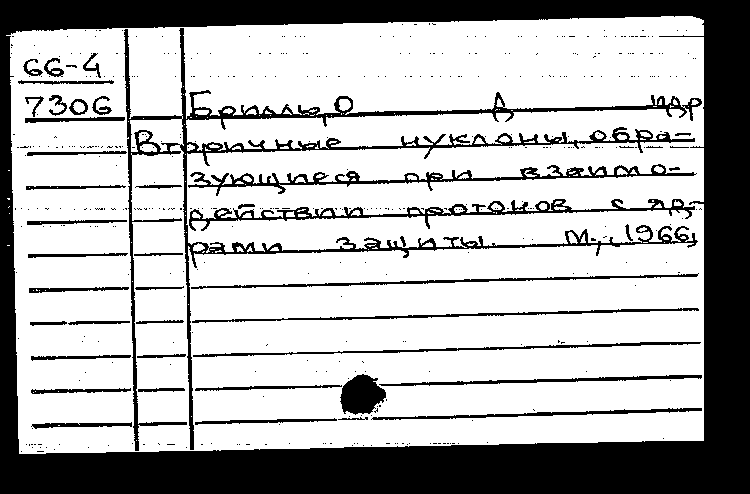 66-4
7306 Брилль, О Д и др
Вторичные нуклоны, обра-
зующиеся при взаимо-
действии протонов с яд-
рами защиты. М., 1966,